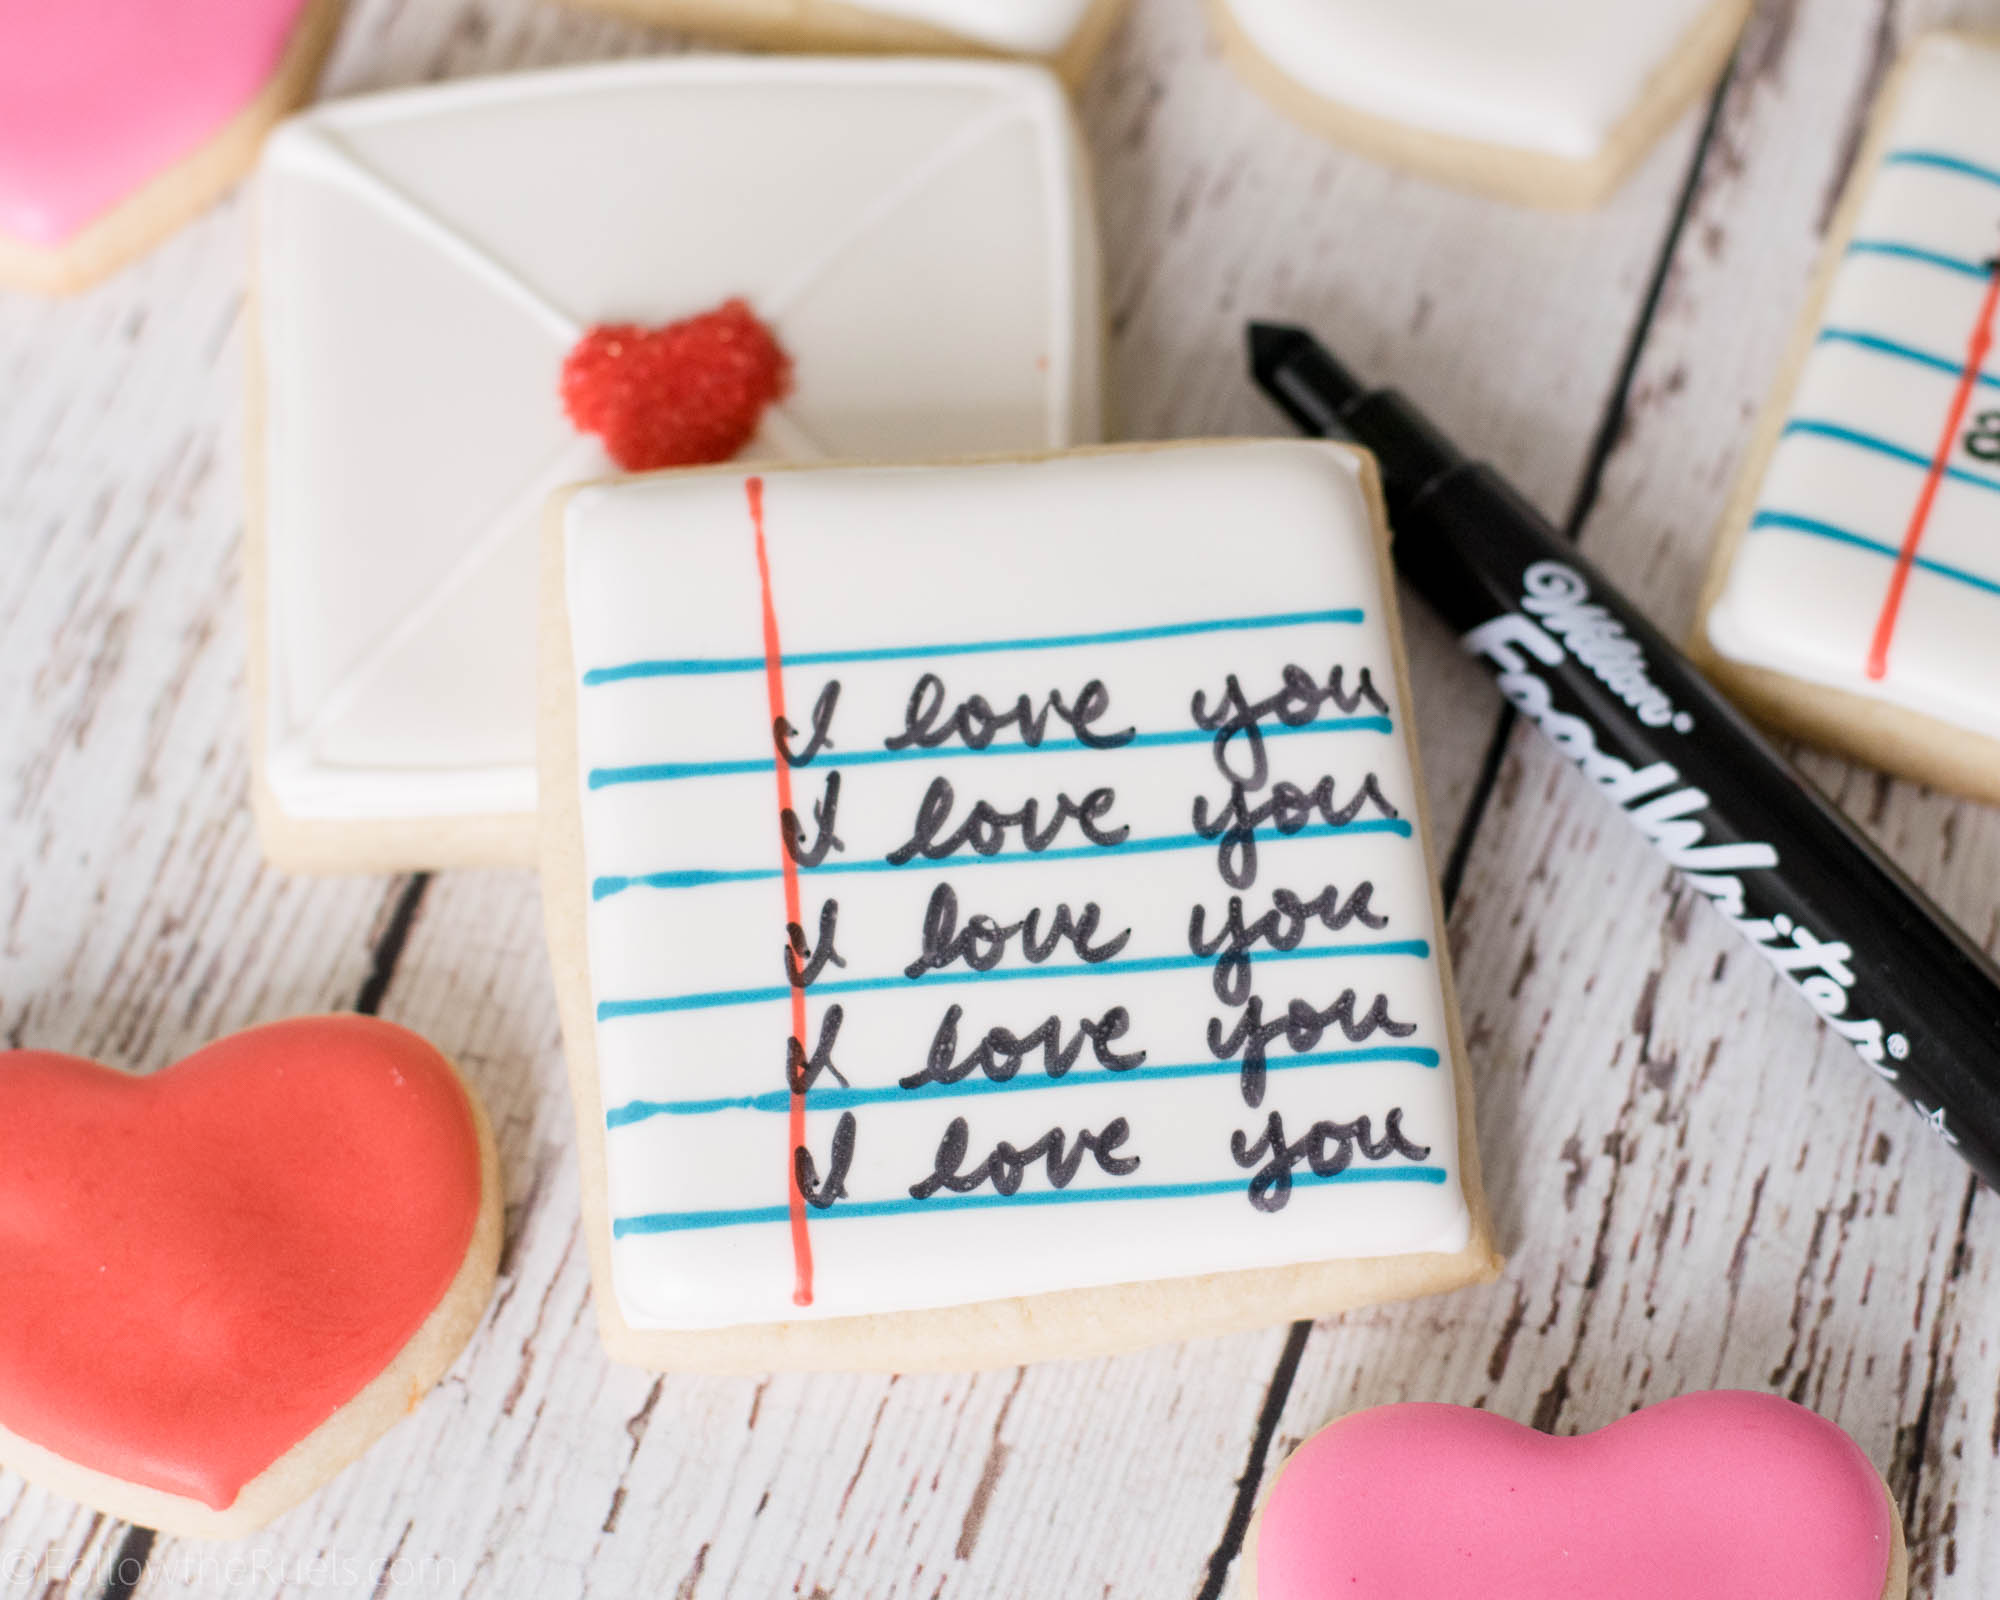 I love you
I love you
I love you
I love you
I love you
Wilton®
FoodWriter®
8
©FollowtheRuels.com